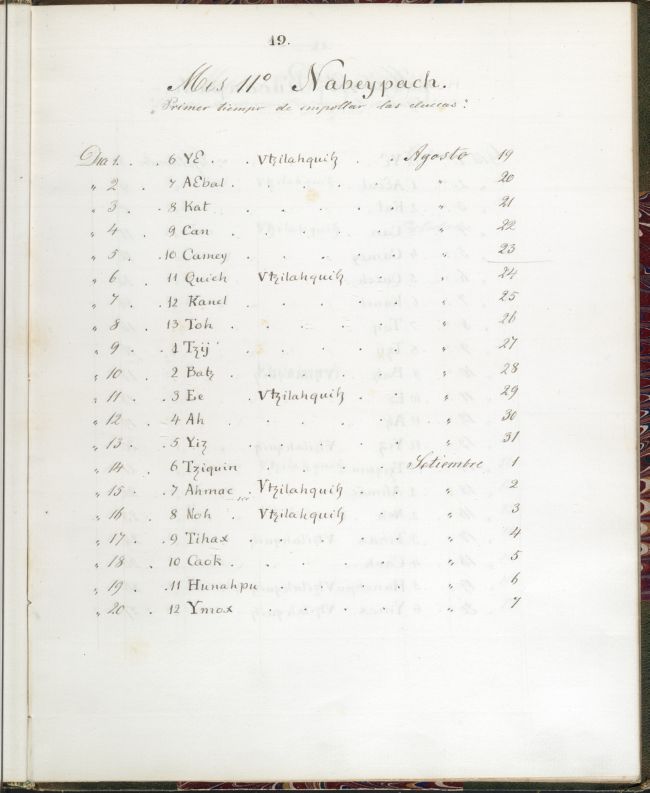 19.
Mes 11º Nabeypach.
Primer tiempo de empollar las cluecas:
Dia 1. . 6 YE . . Vtzilahquih . . Agosto 19
" 2 . 7 AEbal . . . . " 20
" 3 . . 8 Kat . . . . " 21
" 4 . 9 Can . . . . . " 22
" 5 . .10 Camey . . . . " 23
" 6 . 11 Quieh Vtzilahquih . . " 24
" 7 . .12 Kanel . . . . " 25
" 8 . 13 Toh . . . . . " 26
" 9 . .1 Tzij . . . . " 27
" 10 . 2 Batz . . . . . " 28
" 11 . .3 Ee . Vtzilahquih . " 29
" 12 . 4 Ah . . . . " 30
" 13 . .5 Yiz . . . . " 31
" 14 . 6 Tziquin . . . Setiembre 1
" 15 . .7 Ahmac . Vtzilahquih . . " 2
" 16 . 8 Noh . Vtzilahquih . " 3
" 17 . .9 Tihax . . . . " 4
" 18 . 10 Caok . . . . . " 5
" 19 . .11 Hunahpu . . . . " 6
" 20 . 12 Ymox . . . . " 7